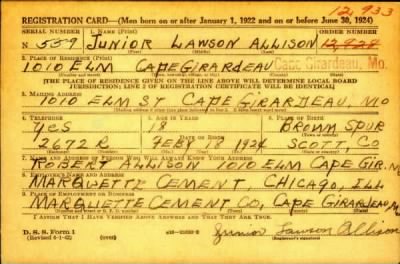 12,933
REGISTRATION CARD—(Men born on or after January 1, 1922 and on or before June 30, 1924)
SERIAL NUMBER 1. NAME (Print) ORDER NUMBER
N 559 JUNIOR LAWSON ALLISON 12,928
2. PLACE OF RESIDENCE (Print)
1010 ELM CAPE GIRARDEAU Cape Girardeau, Mo.
[THE PLACE OF RESIDENCE GIVEN ON THE LINE ABOVE WILL DETERMINE LOCAL BOARD
JURISDICTION; LINE 2 OF REGISTRATION CERTIFICATE WILL BE IDENTICAL]
3. MAILING ADDRESS
1010 ELM ST CAPE GIRARDEAU, MO
4. TELEPHONE 5. AGE IN YEARS 6. PLACE OF BIRTH
YES 18 BROWN SPUR
DATE OF BIRTH
2672 R FEBY 18 1924 SCOTT, CO
7. NAME AND ADDRESS OF PERSON WHO WILL ALWAYS KNOW YOUR ADDRESS
ROBERT ALLISON 1010 ELM CAPE GIR. MO
8. EMPLOYER'S NAME AND ADDRESS
MARQUETTE CEMENT, CHICAGO, ILL.
9. PLACE OF EMPLOYMENT OR BUSINESS
MARQUETTE CEMENT CO, CAPE GIRARDEAU MO
I AFFIRM THAT I HAVE VERIFIED ABOVE ANSWERS AND THAT THEY ARE TRUE.
D. S. S. Form 1
(Revised 6-1-42)
Junior Lawson Allison